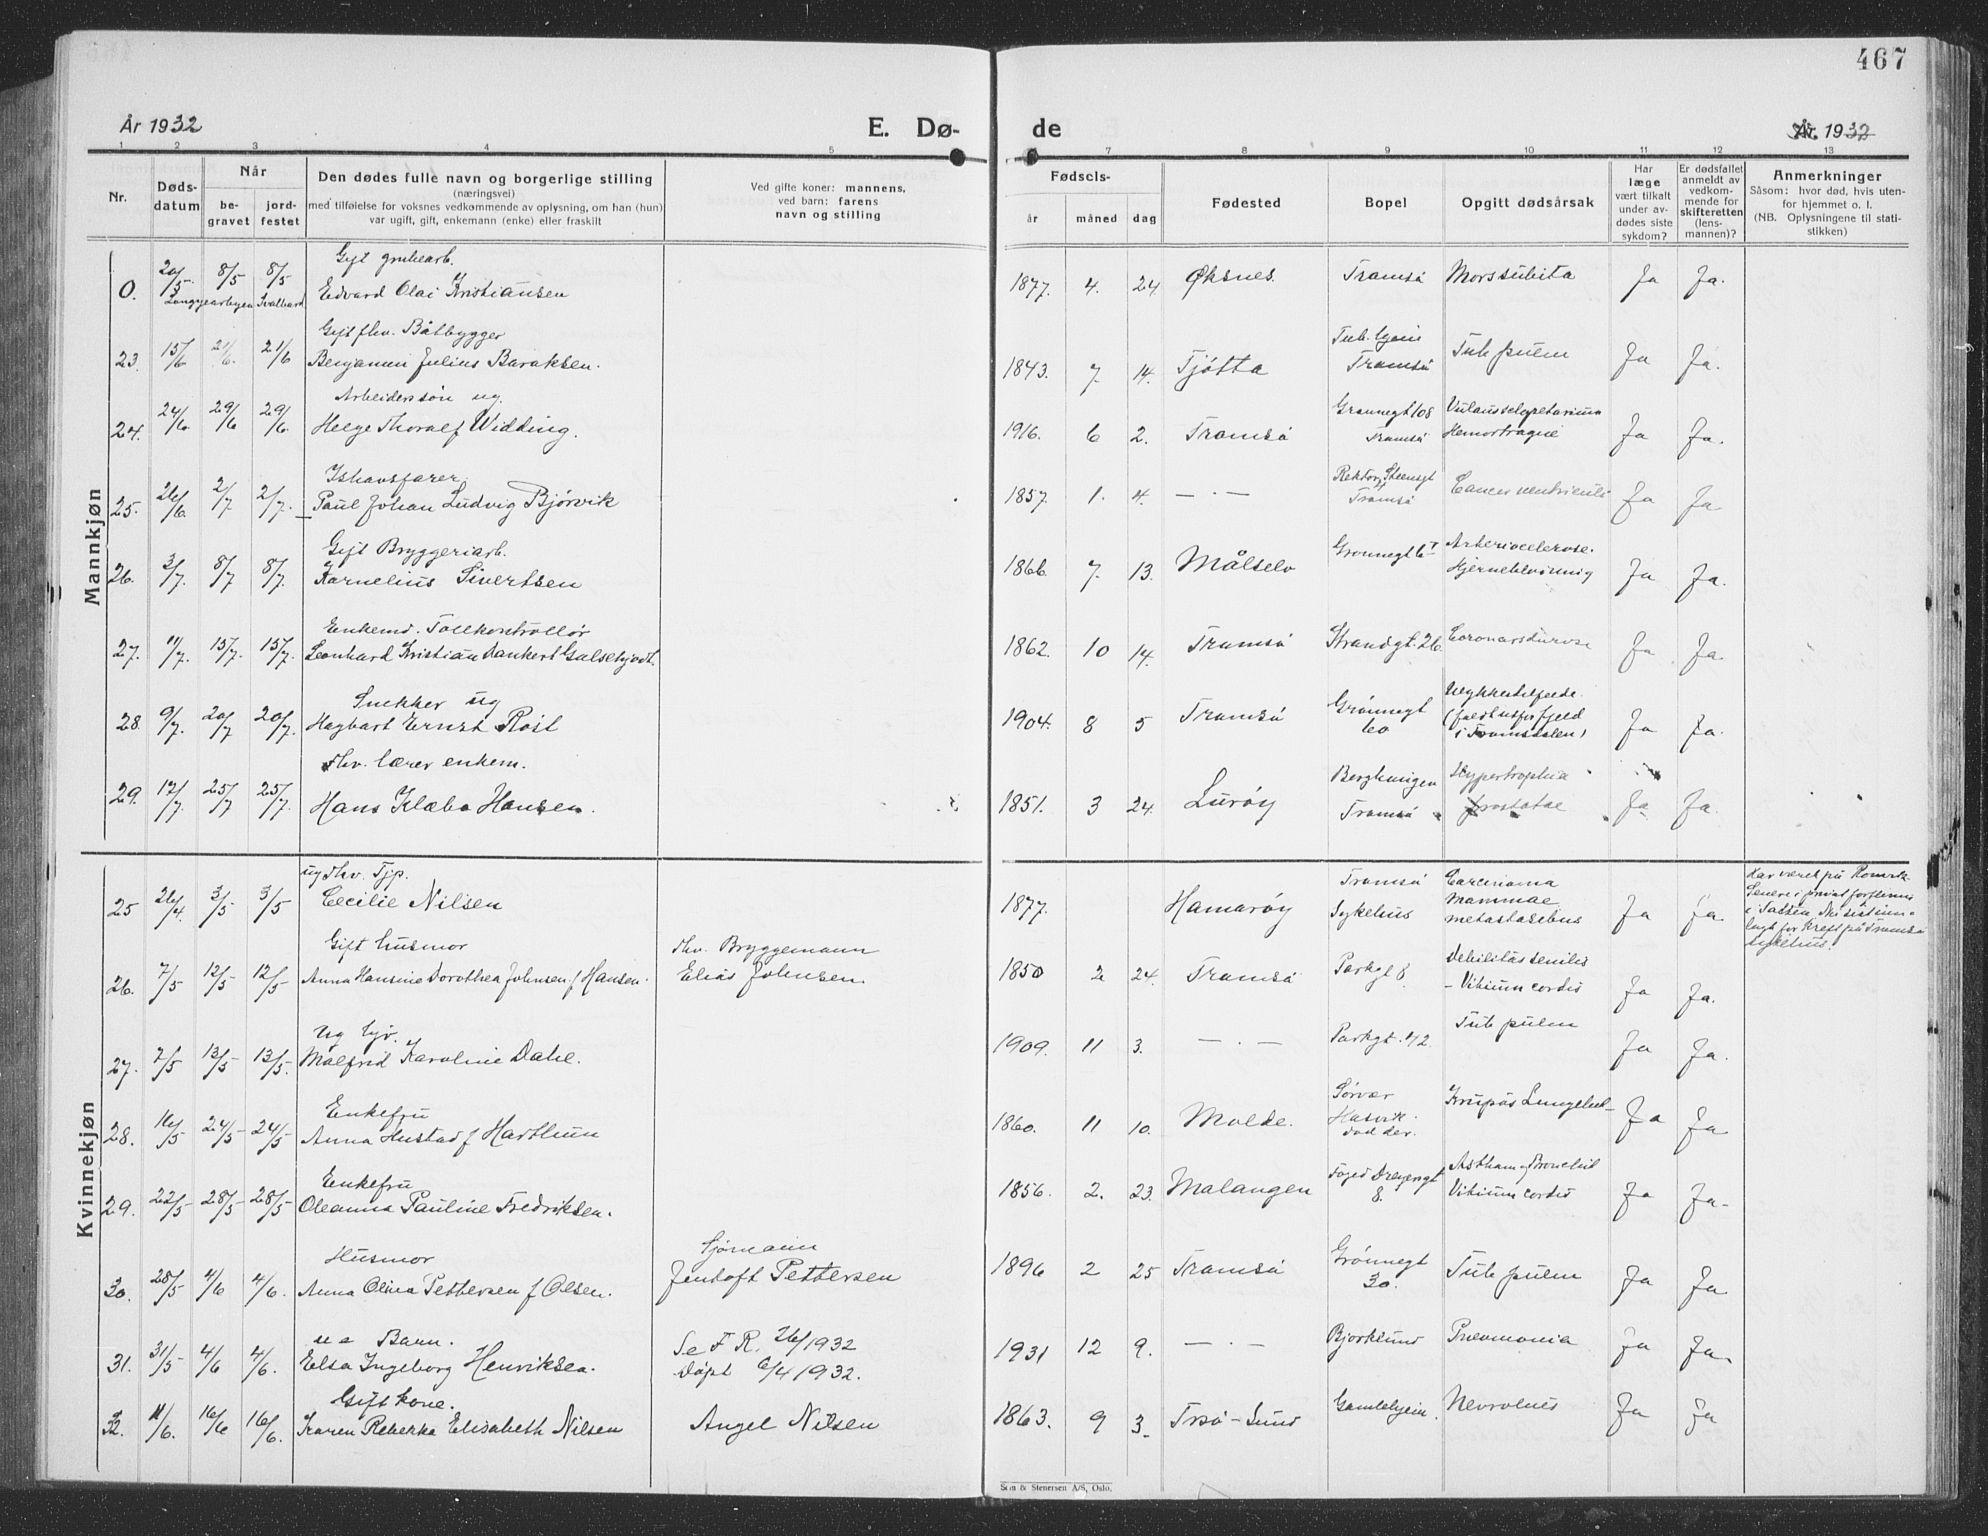 467
År 1932
E. Dø-
de
År 1932
1 2 3 4 5 7 8 9 10 11 12 13
Nr.
Døds-
datum
Når
be-
gravet
jord-
festet
Den dødes fulle navn og borgerlige stilling
(næringsvei)
med tilføielse for voksnes vedkommende av oplysning, om han (hun)
var ugift, gift, enkemann (enke) eller fraskilt
Ved gifte koner: mannens,
ved barn: farens
navn og stilling
Fødsels-
år
måned
dag
Fødested
Bopel
Opgitt dødsårsak
Har
læge
vært tilkalt
under av-
dødes siste
sykdom?
Er dødsfallet
anmeldt av
vedkom-
mende for
skifteretten
(lens-
mannen)?
Anmerkninger
Såsom: hvor død, hvis uten-
for hjemmet o. l.
(NB. Oplysningene til stati-
stikken)
Mannkjøn
Gift grubearb.
0. 20/5 8/5 8/5 Edvard Olai Kristiansen 1877. 4. 24 Øksnes. Tromsö Mors subita Ja Ja.
Longyearbyen Svalbard
Gift fhv. Båtbygger
23. 15/6 21/6. 21/6 Benjamin Julius Baraksen. 1843. 7. 14. Tjøtta Tub. hjem Tromsö Tub pulm Ja Ja.
Arbeidersön ug.
24. 24/6 29/6 29/6. Helge Thoralf Widding. 1916. 6 2. Tromsö Grønnegt 108 Tromsö Ja Ja.
Ishavsfarer
25. 26/6. 2/7 2/7. Paul Johan Ludvig Bjørvik 1857. 1. 4. — · — Rektor Steensgt Tromsö Cancer ventriculi Ja Ja
Gift Bryggeriarb.
26. 3/7. 8/7 8/7. Kornelius Sivertsen 1866. 7. 13. Målselv Ja Ja.
Enkemd. Tollkontrollör
27. 11/7. 15/7. 15/7. Leonhard Kristian Dankert 1862. 10 14. Tromsö Strandgt. 26. Ja Ja.
Snekker ug
28. 9/7. 20/7 20/7. Hagbart Ernst Røst 1904. 8 5 Tromsö Grönnegt 60 (faldt utfor fjeld i Tromsdalen) Ja Ja.
Fhv. lærer enkem.
29. 17/7. 25/7 25/7. Hans Klæbo Hansen. 1851. 3 24. Lurøy Tromsö Hypertrophia prostatae Ja Ja.
Kvinnekjøn
ug fhv. Tjp.
25 26/4. 3/5 3/5 Cecilie Nilsen 1877. Hamarøy Tromsö Sykehus Carcinoma mammae metastasibus Ja Ja.
Har været på
Senere i privat
lagt for Kreft på Tromsö
sykehus.
Gift husmor
26. 7/5 12/5 12/5 Anna Hansine Dorothea Johnsen f Hansen. fhv. Bryggemann
Elias Johnsen. 1850 2 24. Tromsö Parkgt 8. Debilitas senilis
- Vitium cordis Ja Ja.
Ug hjv.
27. 7/5 13/5 13/5. Malfrid Karoline Dahl. 1909. 11 3. — · — Parkgt. 112. Tub pulm Ja Ja.
Enkefru
28. 16/5 24/5 24/5 Anna Hustad f Harthun 1860. 11 10. Molde. Ja Ja
Enkefru
29. 22/5 28/5 28/5 Oleanna Pauline Fredriksen. 1856. 2. 23. Malangen 8. Vitium cordis Ja Ja.
Husmor
30. 28/5 4/6 4/6. Anna Olina Pettersen f Olsen. Sjömann
Jentoft Pettersen 1896 2 25 Tromsö Grönnegt 30. Tub pulm Ja Ja
Barn.
31. 31/5 4/6 4/6. Elsa Ingeborg Henriksen. Se F R. 26/1932
Döpt 6/4 1932. 1931 12 9. — · — Bjorklund Pneumonia Ja Ja.
Gift kone.
32. 11/6. 16/6 16/6. Karen Rebekka Elisabeth Nilsen Angel Nilsen 1863. 9 3. Trsö-Sund Gamlehjem. Ja Ja
Sem & Stenersen A/S, Oslo.